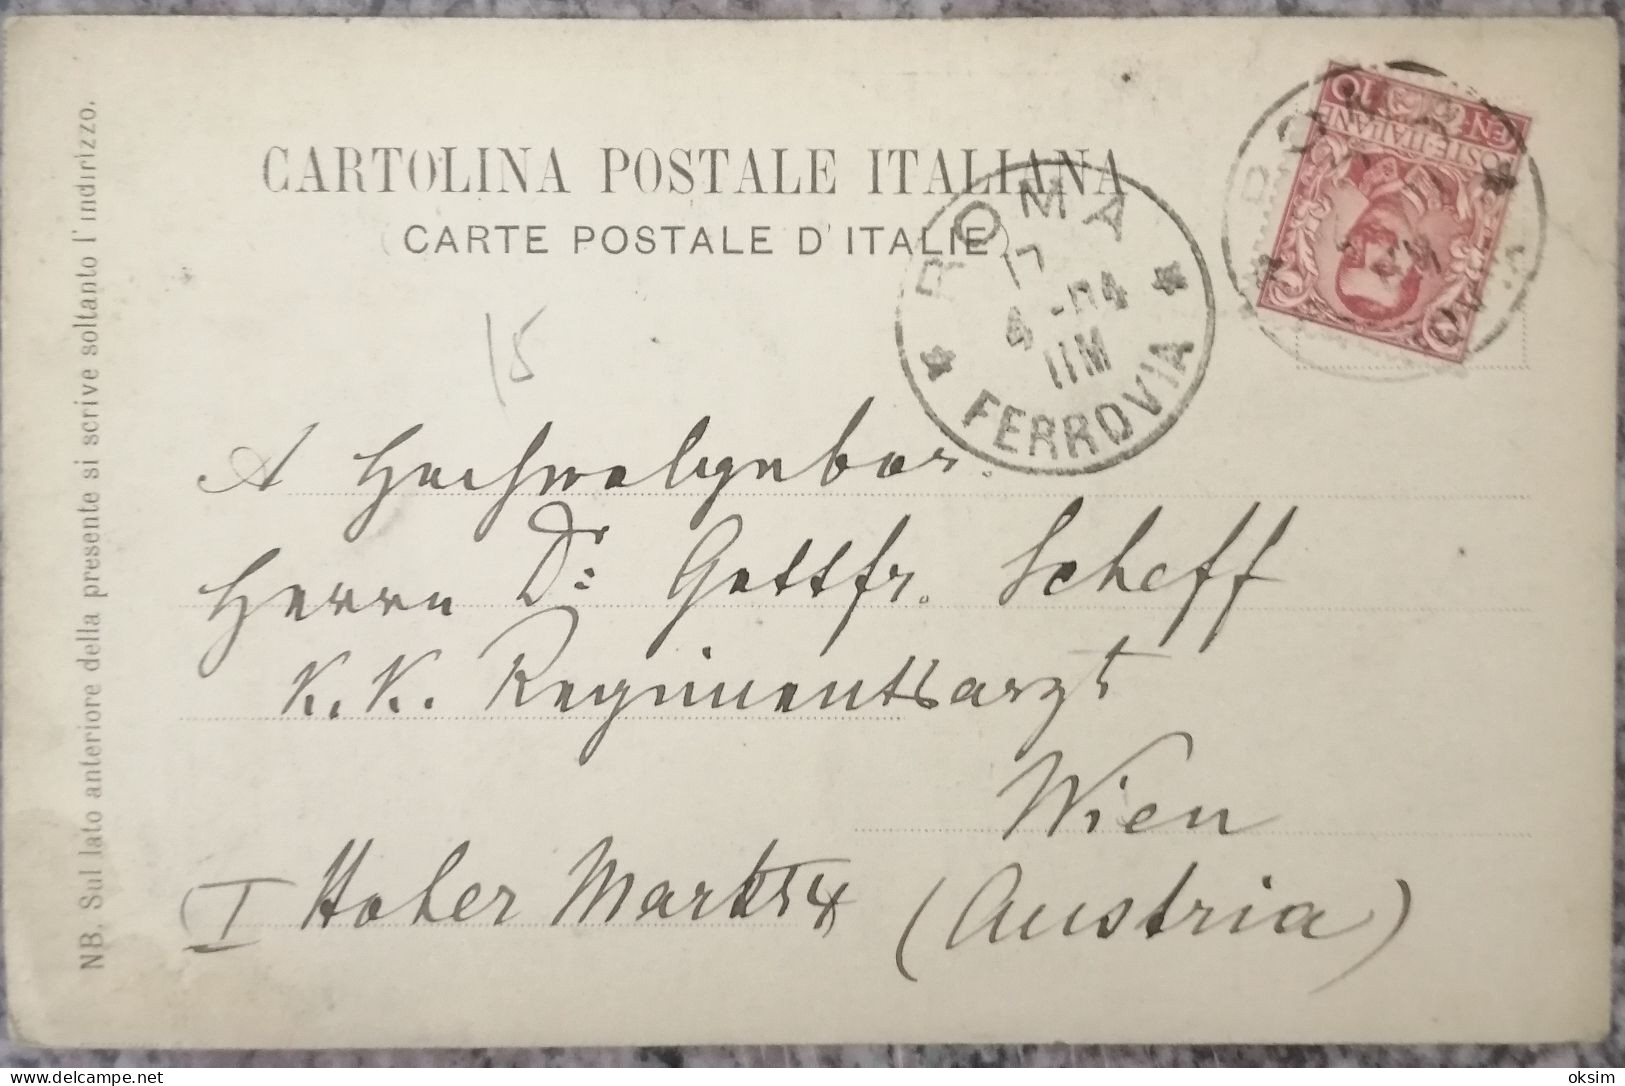 CARTOLINA POSTALE ITALIANA
CARTE POSTALE D'ITALIE
NB. Sul lato anteriore della presente si scrive soltanto l'indirizzo.
ROMA
17
4 -04
11M
* FERROVIA *
POSTE·ITALIANE
10
15
A Hochwolgebor.
Herrn Dr: Gottfr. Scheff
K. K. Regimentsarzt
Wien
I Hoher Markt
(Austria)
delcampe.net
oksim